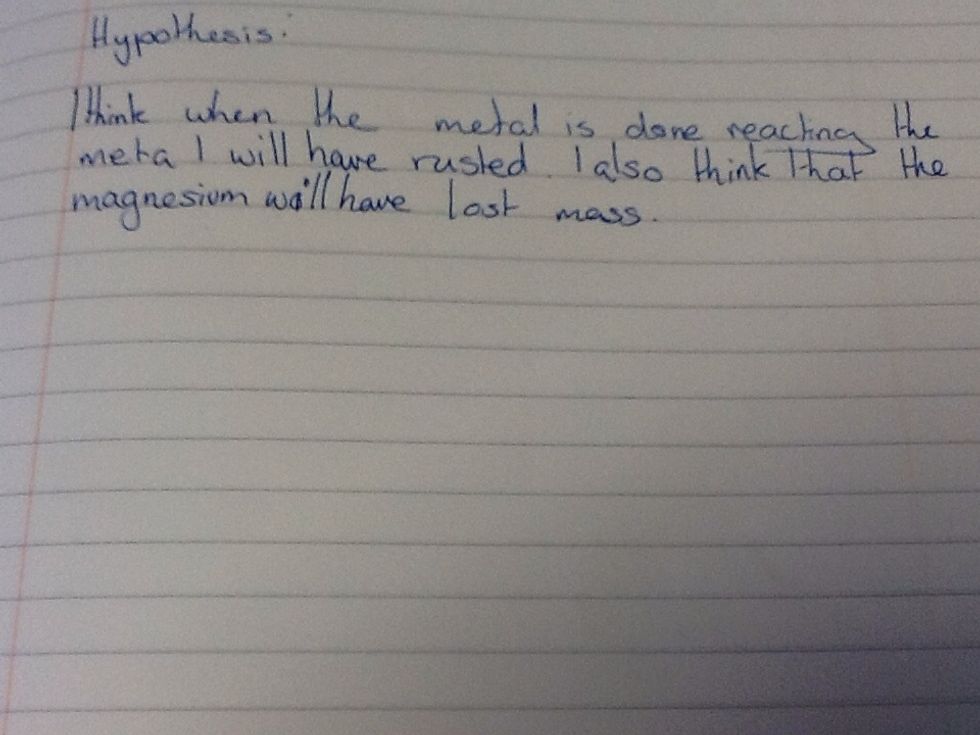 Hypothesis:
I think when the metal is done reacting the
metal will have rusted. I also think that the
magnesium will have lost mass.